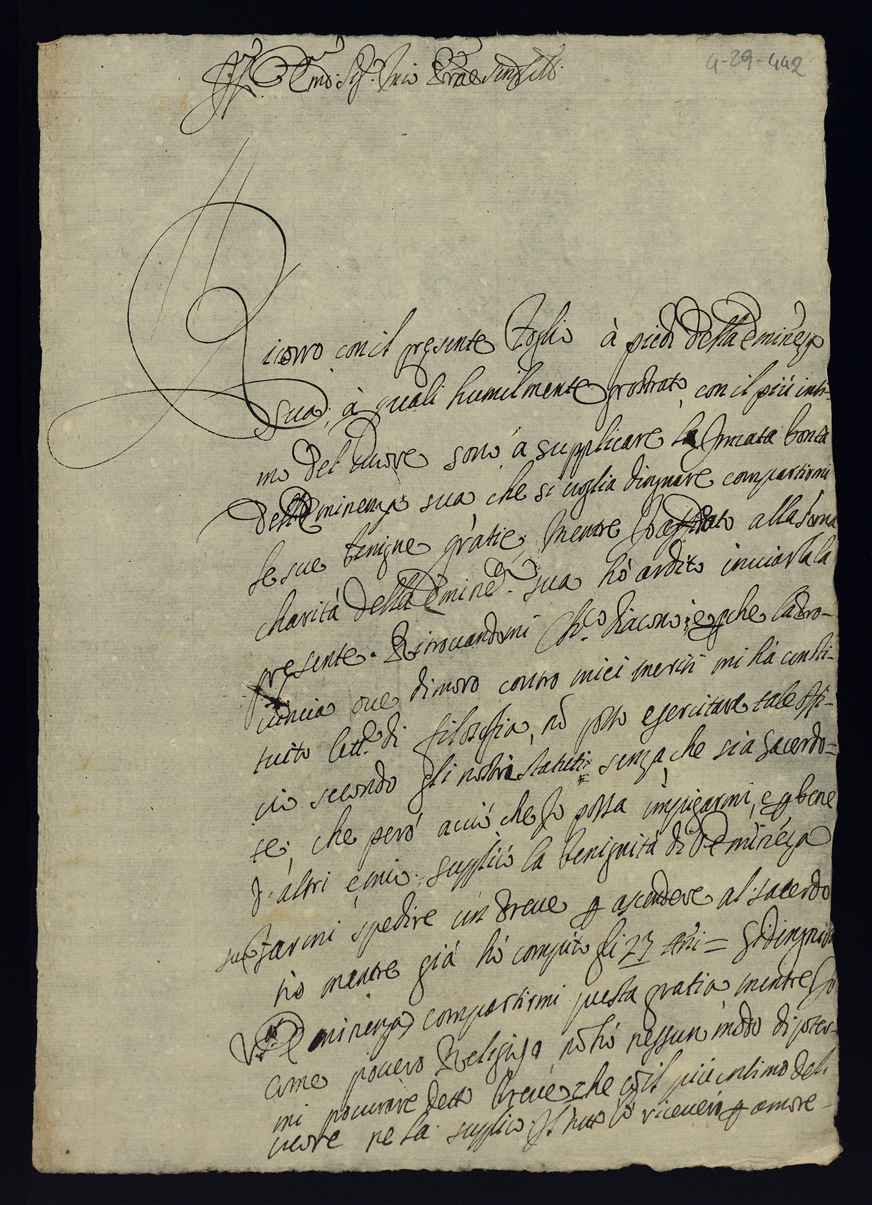 4-29-442
Em.mo Sig.
Ricorro con il presente foglio à piedi dell Eminẽza
sua, à quali humilmente prostrato con il più inti-
mo del cuore sono à supplicare la innata bontà
dell Eminenza sua che si voglia dingnare compartirmi
le sue benigne gratie, mentre alla somma
charità dell Emine.za sua hò ardito inviarla la
presente. Ritrovandomi diacono, e che la Pro-
vincia ove dimoro contro miei meriti mi hà consti-
tuito Lett.e di filosofia, nõ posso esercitare tale offi-
cio secondo gli nostri statuti senza che sia sacerdo-
te, che però acciò che Io possa impiegarmi, e p bene
d'altri e mio supplico la benignità di V. Eminẽza
farmi spedire un Breve p ascendere al sacerdo
tio mentre già hò compito gli 23 Ani =
V. Eminenza compartirmi questa gratia mentre Io
come povero Religioso nõ hò nessun modo di poter-
mi procurare detto Breve che cõ il più intimo del
cuore ne la supplico, Il tutto lo riceverò p amore-